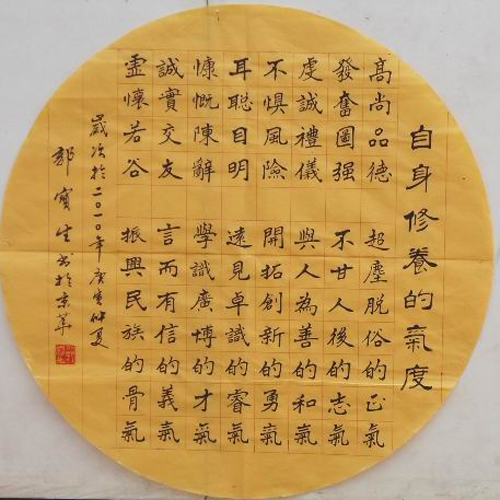 自身修養的氣度
髙尚品德 超塵脱俗的正氣
發奮圖强 不甘人後的志氣
虔誠禮儀 與人為善的和氣
不惧風險 開拓創新的勇氣
耳聪目明 遠見卓識的睿氣
慷慨陳辭 學識廣博的才氣
誠實交友 言而有信的義氣
虛懷若谷 振興民族的骨氣
歲次於二〇一〇年庚寅仲夏
郭寶生书於京華